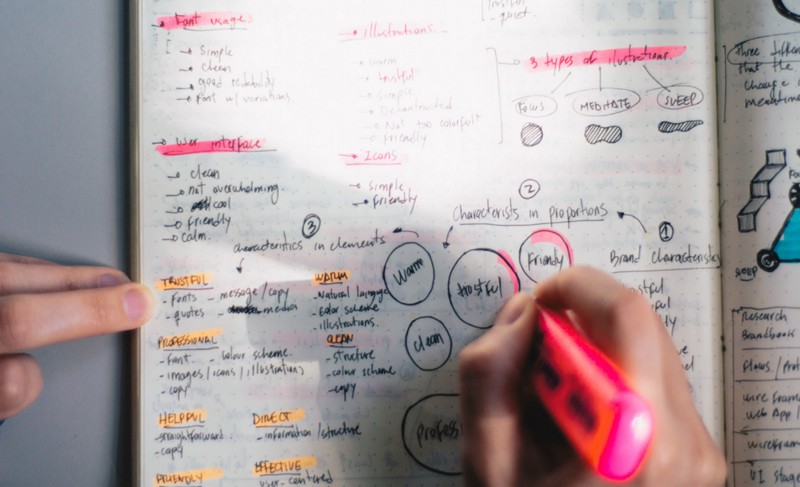 quiet.
Font usage
simple
clean
good readability
font w/ variations
illustrations.
warm
trustful
simple
Deconstructed
Not too colorfull
friendly
3 types of ilustrations.
FOCUS
MEDITATE
SLEEP
User interface
clean
not overwhelming.
cool
friendly
calm.
Icons
simple
friendly
2
Characterists in proportions
1
Brand characteristics
3
characteristics in elements
Warm
trustful
Friendly
clean
professi
TRUSTFUL
- Fonts - message/copy
- quotes - media
PROFESSIONAL
- Font. - colour scheme.
- images/icons/illustrations
- copy
HELPFUL
- straightforward.
- copy
FRIENDLY
WARM
- Natural language
- color scheme
- illustrations.
CLEAN
- structure
- colour scheme
- copy
DIRECT
- information/structure
EFFECTIVE
user-centered
Three
that the
change
SLEEP
Research
Flows/
wireframe
web App/
wireframe
UI